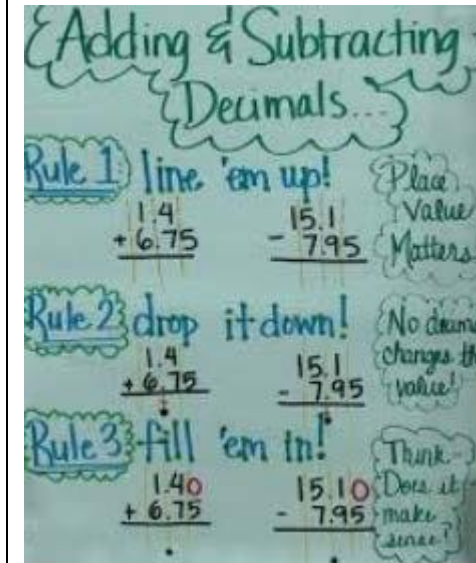 Adding & Subtracting
Decimals...
Rule 1 line 'em up!
1.4
+ 6.75
15.1
- 7.95
Place
Value
Matters
Rule 2 drop it down!
1.4
+ 6.75
.
15.1
- 7.95
.
No
changes
value!
Rule 3 fill 'em in!
1.40
+ 6.75
.
15.10
- 7.95
.
Think -
Does it
make
sense?